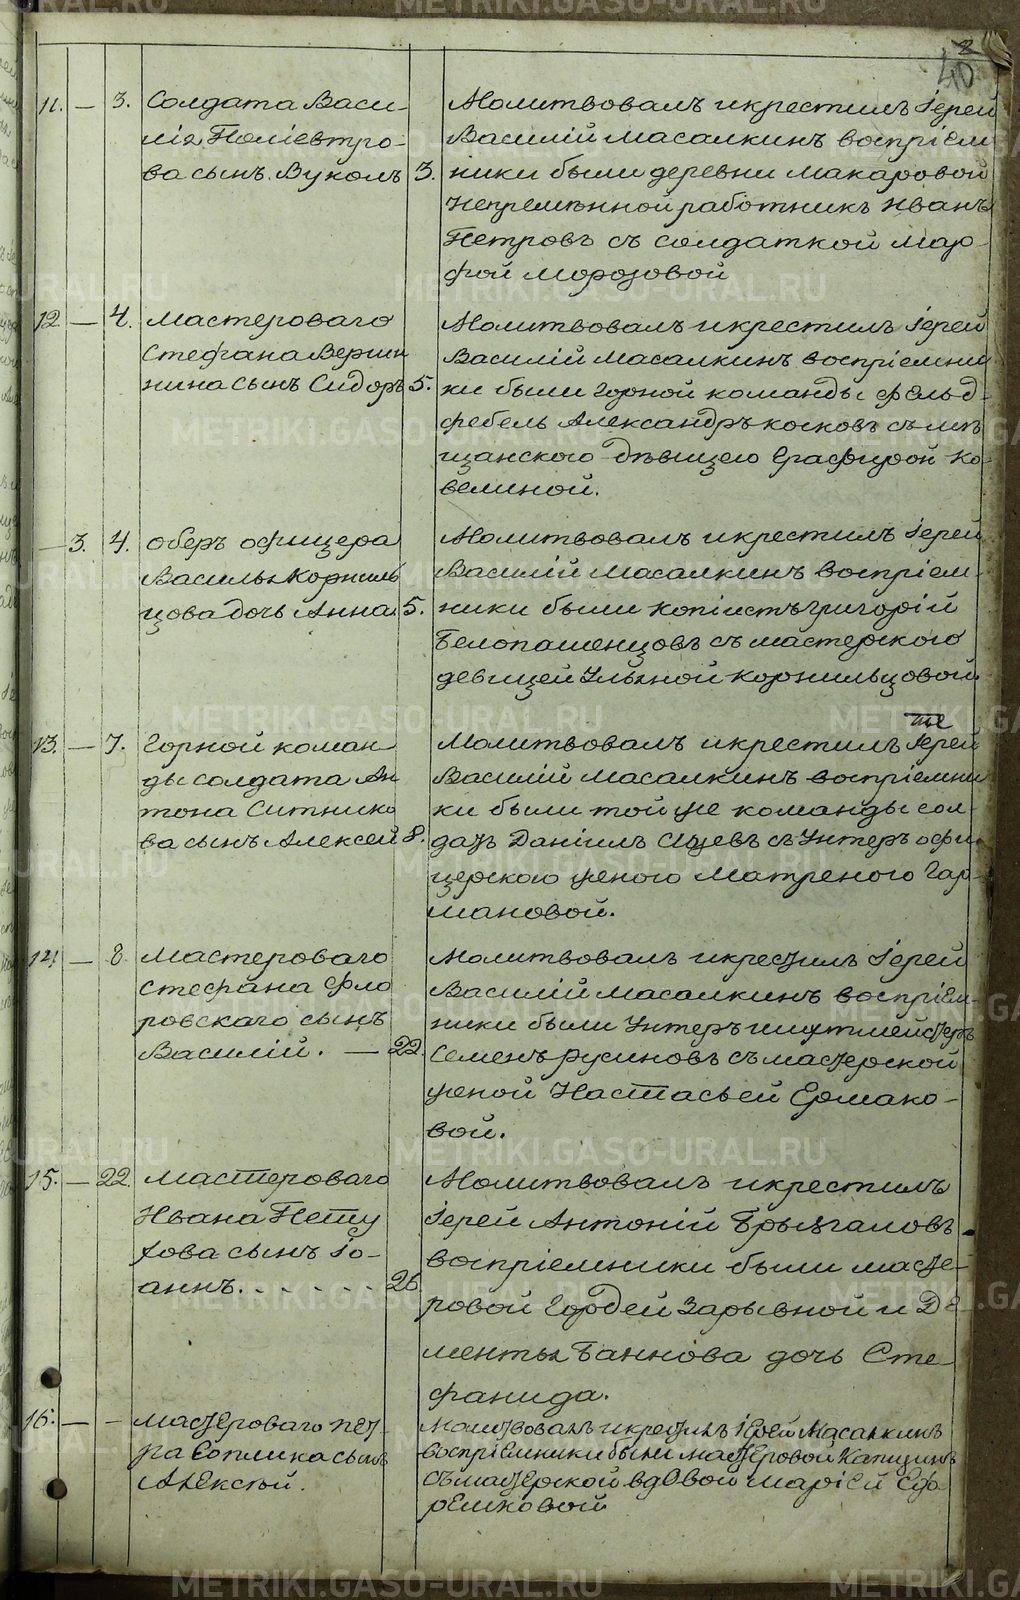 40
11. — 3. Солдата Васи-
лія Поліевтро-
ва сынъ Вуколъ 3.
Молитвовалъ икрестилъ Іерей
Василій Масалкинъ воспріем
ники были деревни Макаровой
Непремѣнной работникъ Иванъ
Петровъ съ солдаткой Мар-
фой Морозовой
12 — 4. Мастероваго
Стефана Верши
нина сынъ Сидоръ 5.
Молитвовалъ икрестилъ Іерей
Василій Масалкинъ воспріемни
ки были Горной команды фельд-
фебель Александръ Косковъ съ мѣ
щанского дѣвицею Епафирой Ко-
велиной.
— 3. 4. оберъ офицера
Василья Корниль
цова дочь Анна 5.
Молитвовалъ икрестилъ Іерей
Василій Масалкинъ воспріем-
ники были копіистъ Григорій
Белопашенцовъ съ мастерского
девицей Ульяной Корнильцовой
тѣ
13. — 7. Горной коман
ды солдата Ан
тона Ситнико
ва сынъ Алексей 8.
Молитвовалъ икрестилъ Іерей
Василій Масалкинъ воспріемни
ки были той же команды сол-
датъ Даніилъ съ Унтеръ офи
церскою женою Матреною Гар-
мановой.
14. — 8 Мастероваго
Стефана Фло
ровскаго сынъ
Василій. — 22.
Молитвовалъ икрестилъ Іерей
Василій Масалкинъ воспріем-
ники были Унтеръ шихтмейстеръ
Семенъ Русиновъ съ мастерской
женой Настасьей Ермако-
вой.
15. — 22. Мастероваго
Ивана Пету
хова сынъ Іо-
аннъ. . . . . . 26
Молитвовалъ икрестилъ
Іерей Антоній Брызгаловъ
воспріемники были масте-
ровой Гордей Зарывной и Де
ментья Баннова дочь Сте
фанида.
16. — — Мастероваго Пет-
ра Соплика сынъ
Алексѣй.
Молитвовалъ икрестилъ Іерей Масалкинъ
воспріемники были мастеровой Капицинъ
съ мастерской вдовой Маріей Еф-
ремковой
METRIKI.GASO-URAL.RU